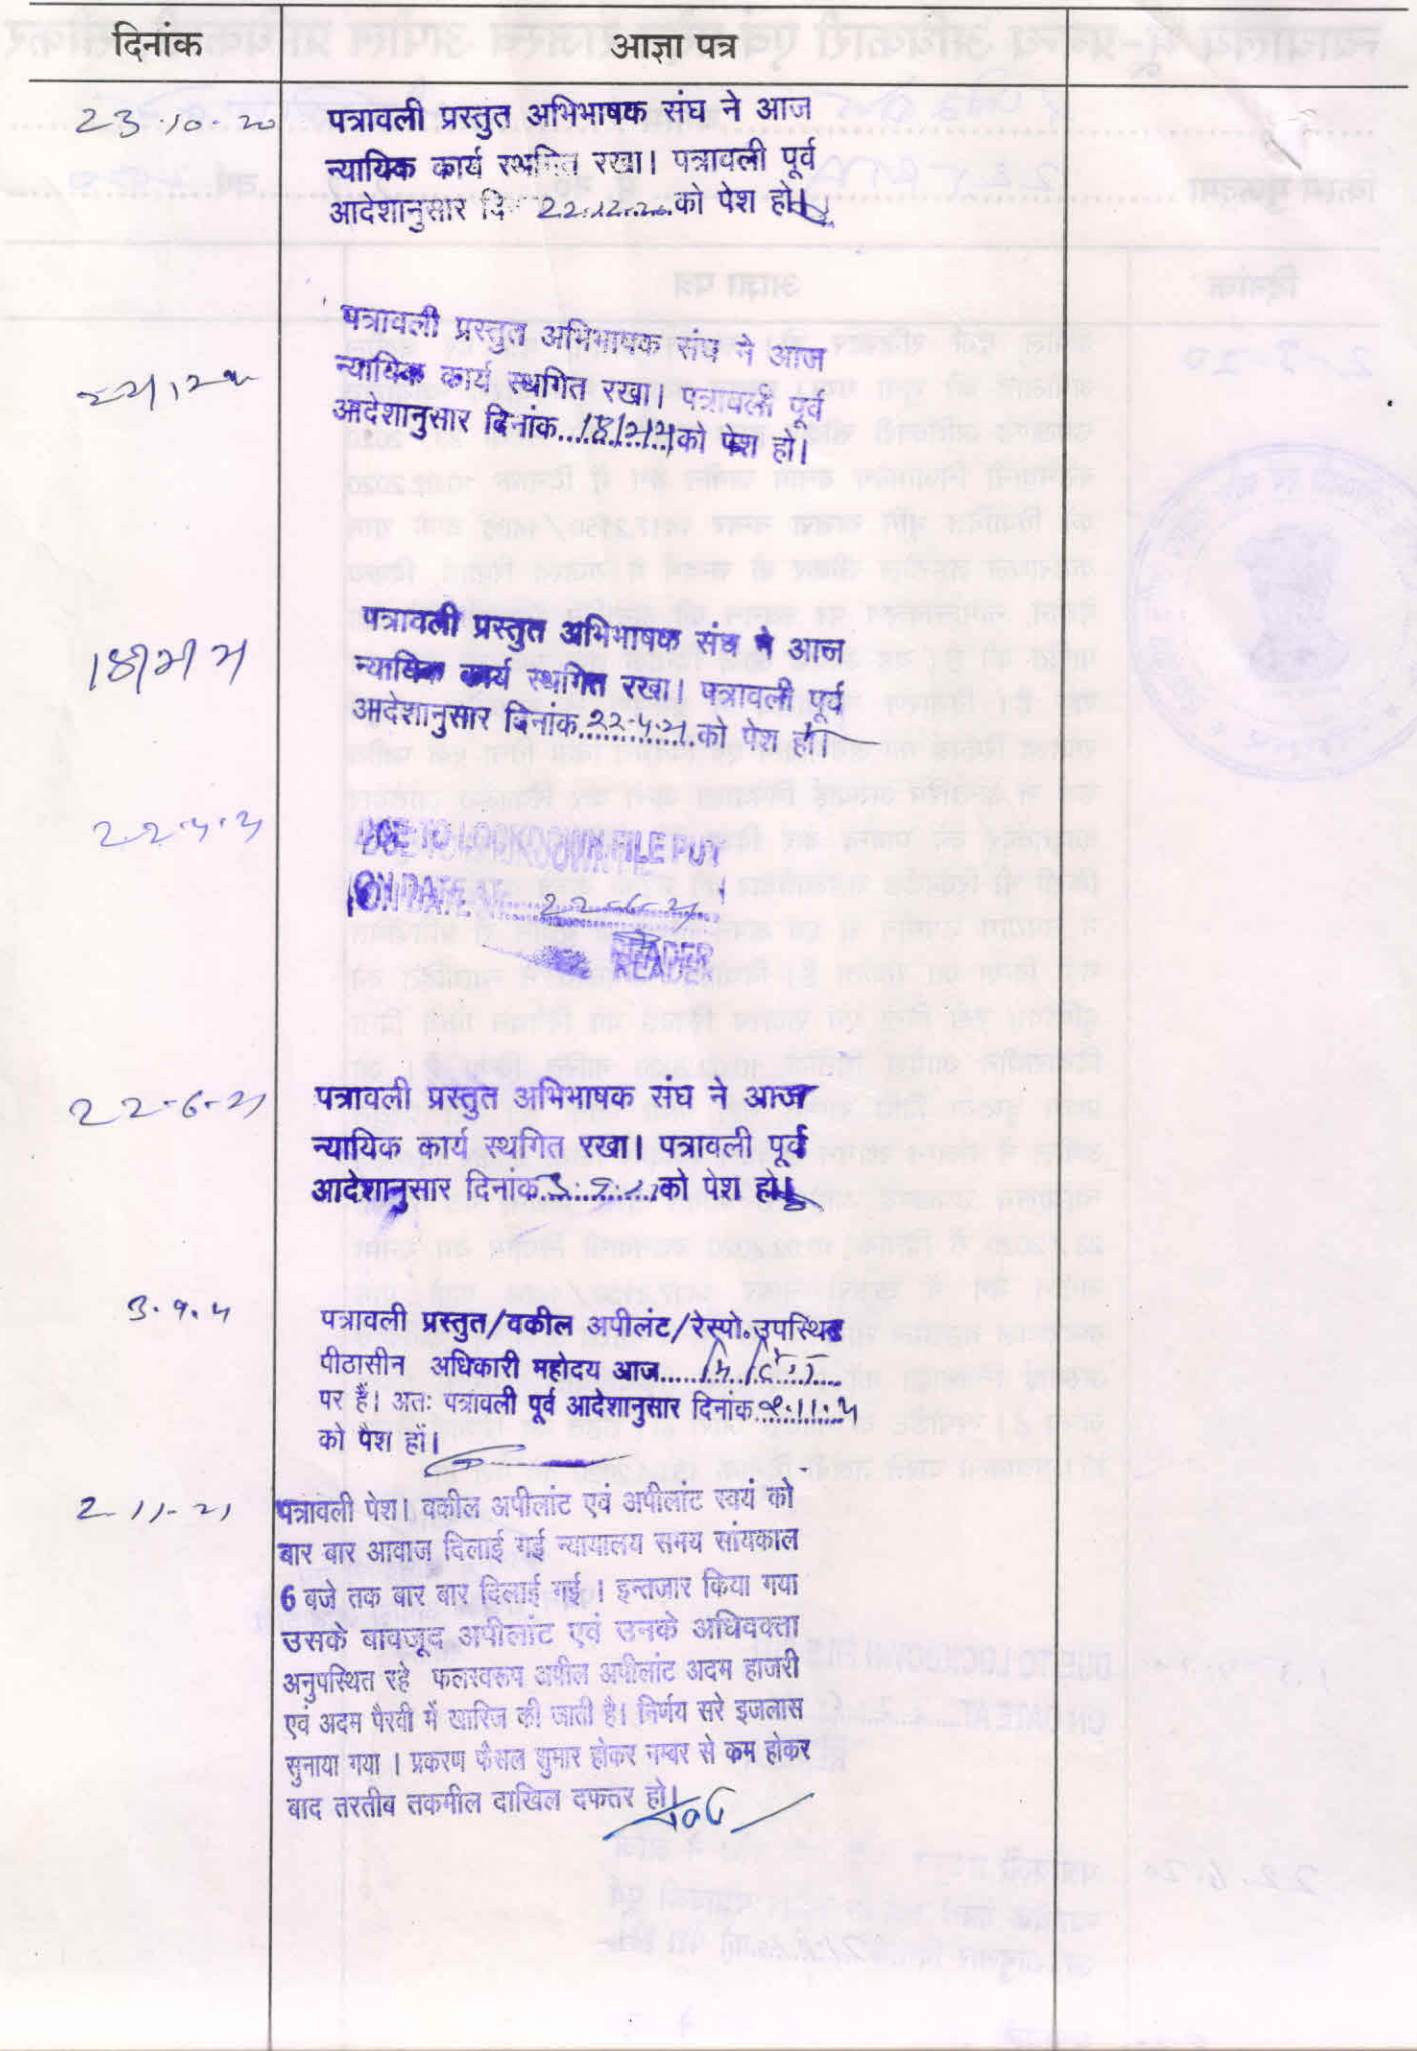 दिनांक
आज्ञा पत्र
23.10.20
पत्रावली प्रस्तुत अभिभाषक संघ ने आज
न्यायिक कार्य स्थगित रखा। पत्रावली पूर्व
आदेशानुसार दि 22.12.20 को पेश हो।
पत्रावली प्रस्तुत अभिभाषक संघ ने आज
न्यायिक कार्य स्थगित रखा। पत्रावली पूर्व
आदेशानुसार दिनांक...18/2/21 को पेश हो।
पत्रावली प्रस्तुत अभिभाषक संघ ने आज
न्यायिक कार्य स्थगित रखा। पत्रावली पूर्व
आदेशानुसार दिनांक 22.4.21 को पेश हो।
DUE TO LOCKDOWN FILE PUT
ON DATE AT 22-6-21
READER
22-6-21
पत्रावली प्रस्तुत अभिभाषक संघ ने आज
न्यायिक कार्य स्थगित रखा। पत्रावली पूर्व
आदेशानुसार दिनांक 3.9.21 को पेश हो।
3.9.21
पत्रावली प्रस्तुत/वकील अपीलंट/रेस्पो.उपस्थित
पीठासीन अधिकारी महोदय आज
पर हैं। अतः पत्रावली पूर्व आदेशानुसार दिनांक 2.11.21
को पेश हों।
2-11-21
पत्रावली पेश। वकील अपीलांट एवं अपीलांट स्वयं को
बार बार आवाज दिलाई गई न्यायालय समय सांयकाल
6 बजे तक बार बार दिलाई गई । इन्तजार किया गया
उसके बावजूद अपीलांट एवं उनके अधिवक्ता
अनुपस्थित रहे फलस्वरूप अपील अपीलांट अदम हाजरी
एवं अदम पैरवी में खारिज की जाती है। निर्णय सरे इजलास
सुनाया गया । प्रकरण फैसल शुमार होकर नम्बर से कम होकर
बाद तरतीब तकमील दाखिल दफतर हो।